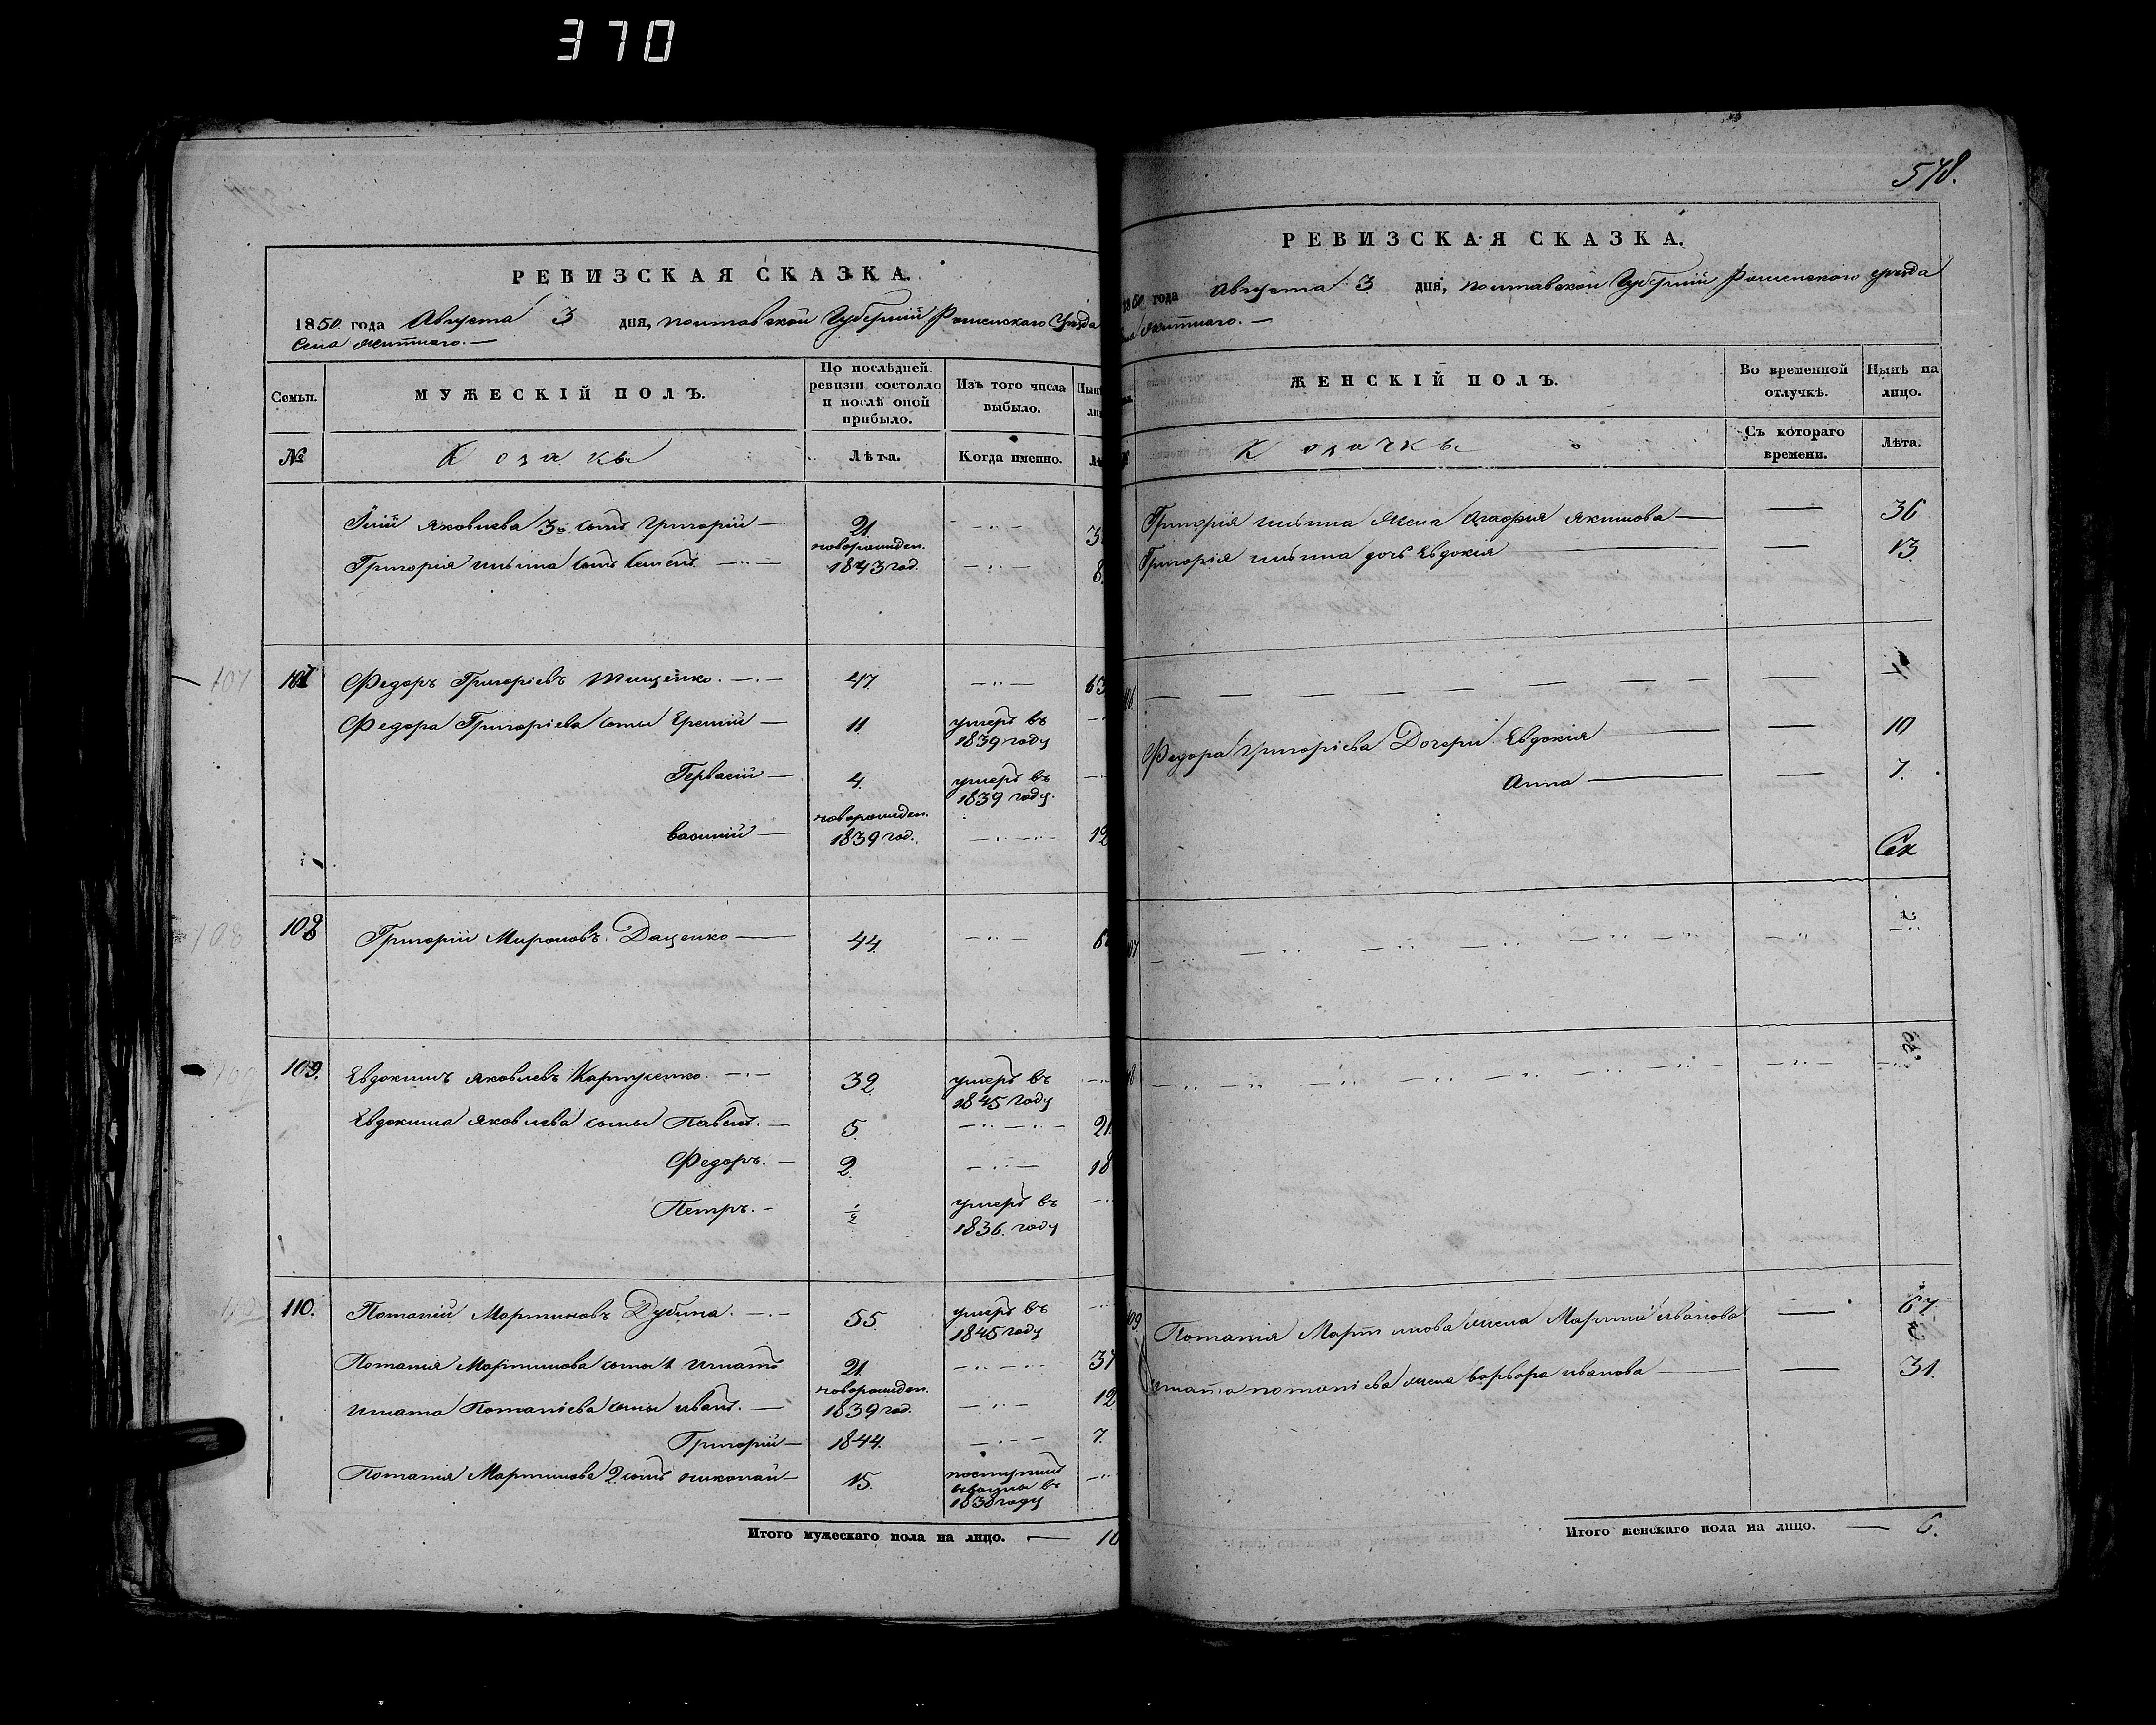 370
РЕВИЗСКАЯ СКАЗКА.
1850. года Августа 3 дня, Полтавской Губерніи Роменскаго Уѣзда
Села
Семьи.
МУЖЕСКІЙ ПОЛЪ.
По послѣдней ревизіи состояло и послѣ оной прибыло.
Изъ того числа выбыло.
№
Козаки
Лѣта.
Когда именно.
Яковлева 3й сынъ Григорій — 21. — 
Григорія Ильина сынъ Семенъ — новорожден. 1843 год. — 8.
107 Федоръ Григоріевъ Тищенко. — 47. — 63
Федора Григоріева сыны Еремій — 11 умеръ въ 1839 году —
Гервасій — 4. умеръ въ 1839 году. —
Василій — новорожден. 1839 год. — 12
108 Григорій Мироновъ Даценко — 44. —
109. Евдокимъ Яковлевъ Карпусенко. — 32. умеръ въ 1845 году —
Евдокима Яковлева сыны Павелъ. — 5. — 21.
Федоръ. — 2. — 18
Петръ. — ½ умеръ въ 1836. году —
110. Потапій Мартиновъ Дубина. — 55. умеръ въ 1845 году —
Потапія Мартинова сыны 1 Игнатъ 21. — 37
Игната Потапіева сыны Иванъ. — новорожден. 1839 год. — 12
Григорій — 1844. — 7.
Потапія Мартинова 2 сынъ Николай — 15. поступилъ въ 1838 году —
Итого мужескаго пола на лицо. — 10
578.
РЕВИЗСКАЯ СКАЗКА.
1850 года Августа 3 дня, Полтавской Губерніи Роменскаго уѣзда
ЖЕНСКІЙ ПОЛЪ.
Во временной отлучкѣ.
Нынѣ на лицо.
Козачки
Съ котораго времени.
Лѣта.
Григорія Ильина жена Агафія Якимова — — 36
Григорія Ильина дочь Евдокія — — 13.
Федора Григоріева Дочери Евдокія — — 10
Анна — — 7.
Потапія Мартинова жена Марина Иванова — 67.
Игната Потапіева жена Варвара Иванова — — 31.
Итого женскаго пола на лицо. — 6.